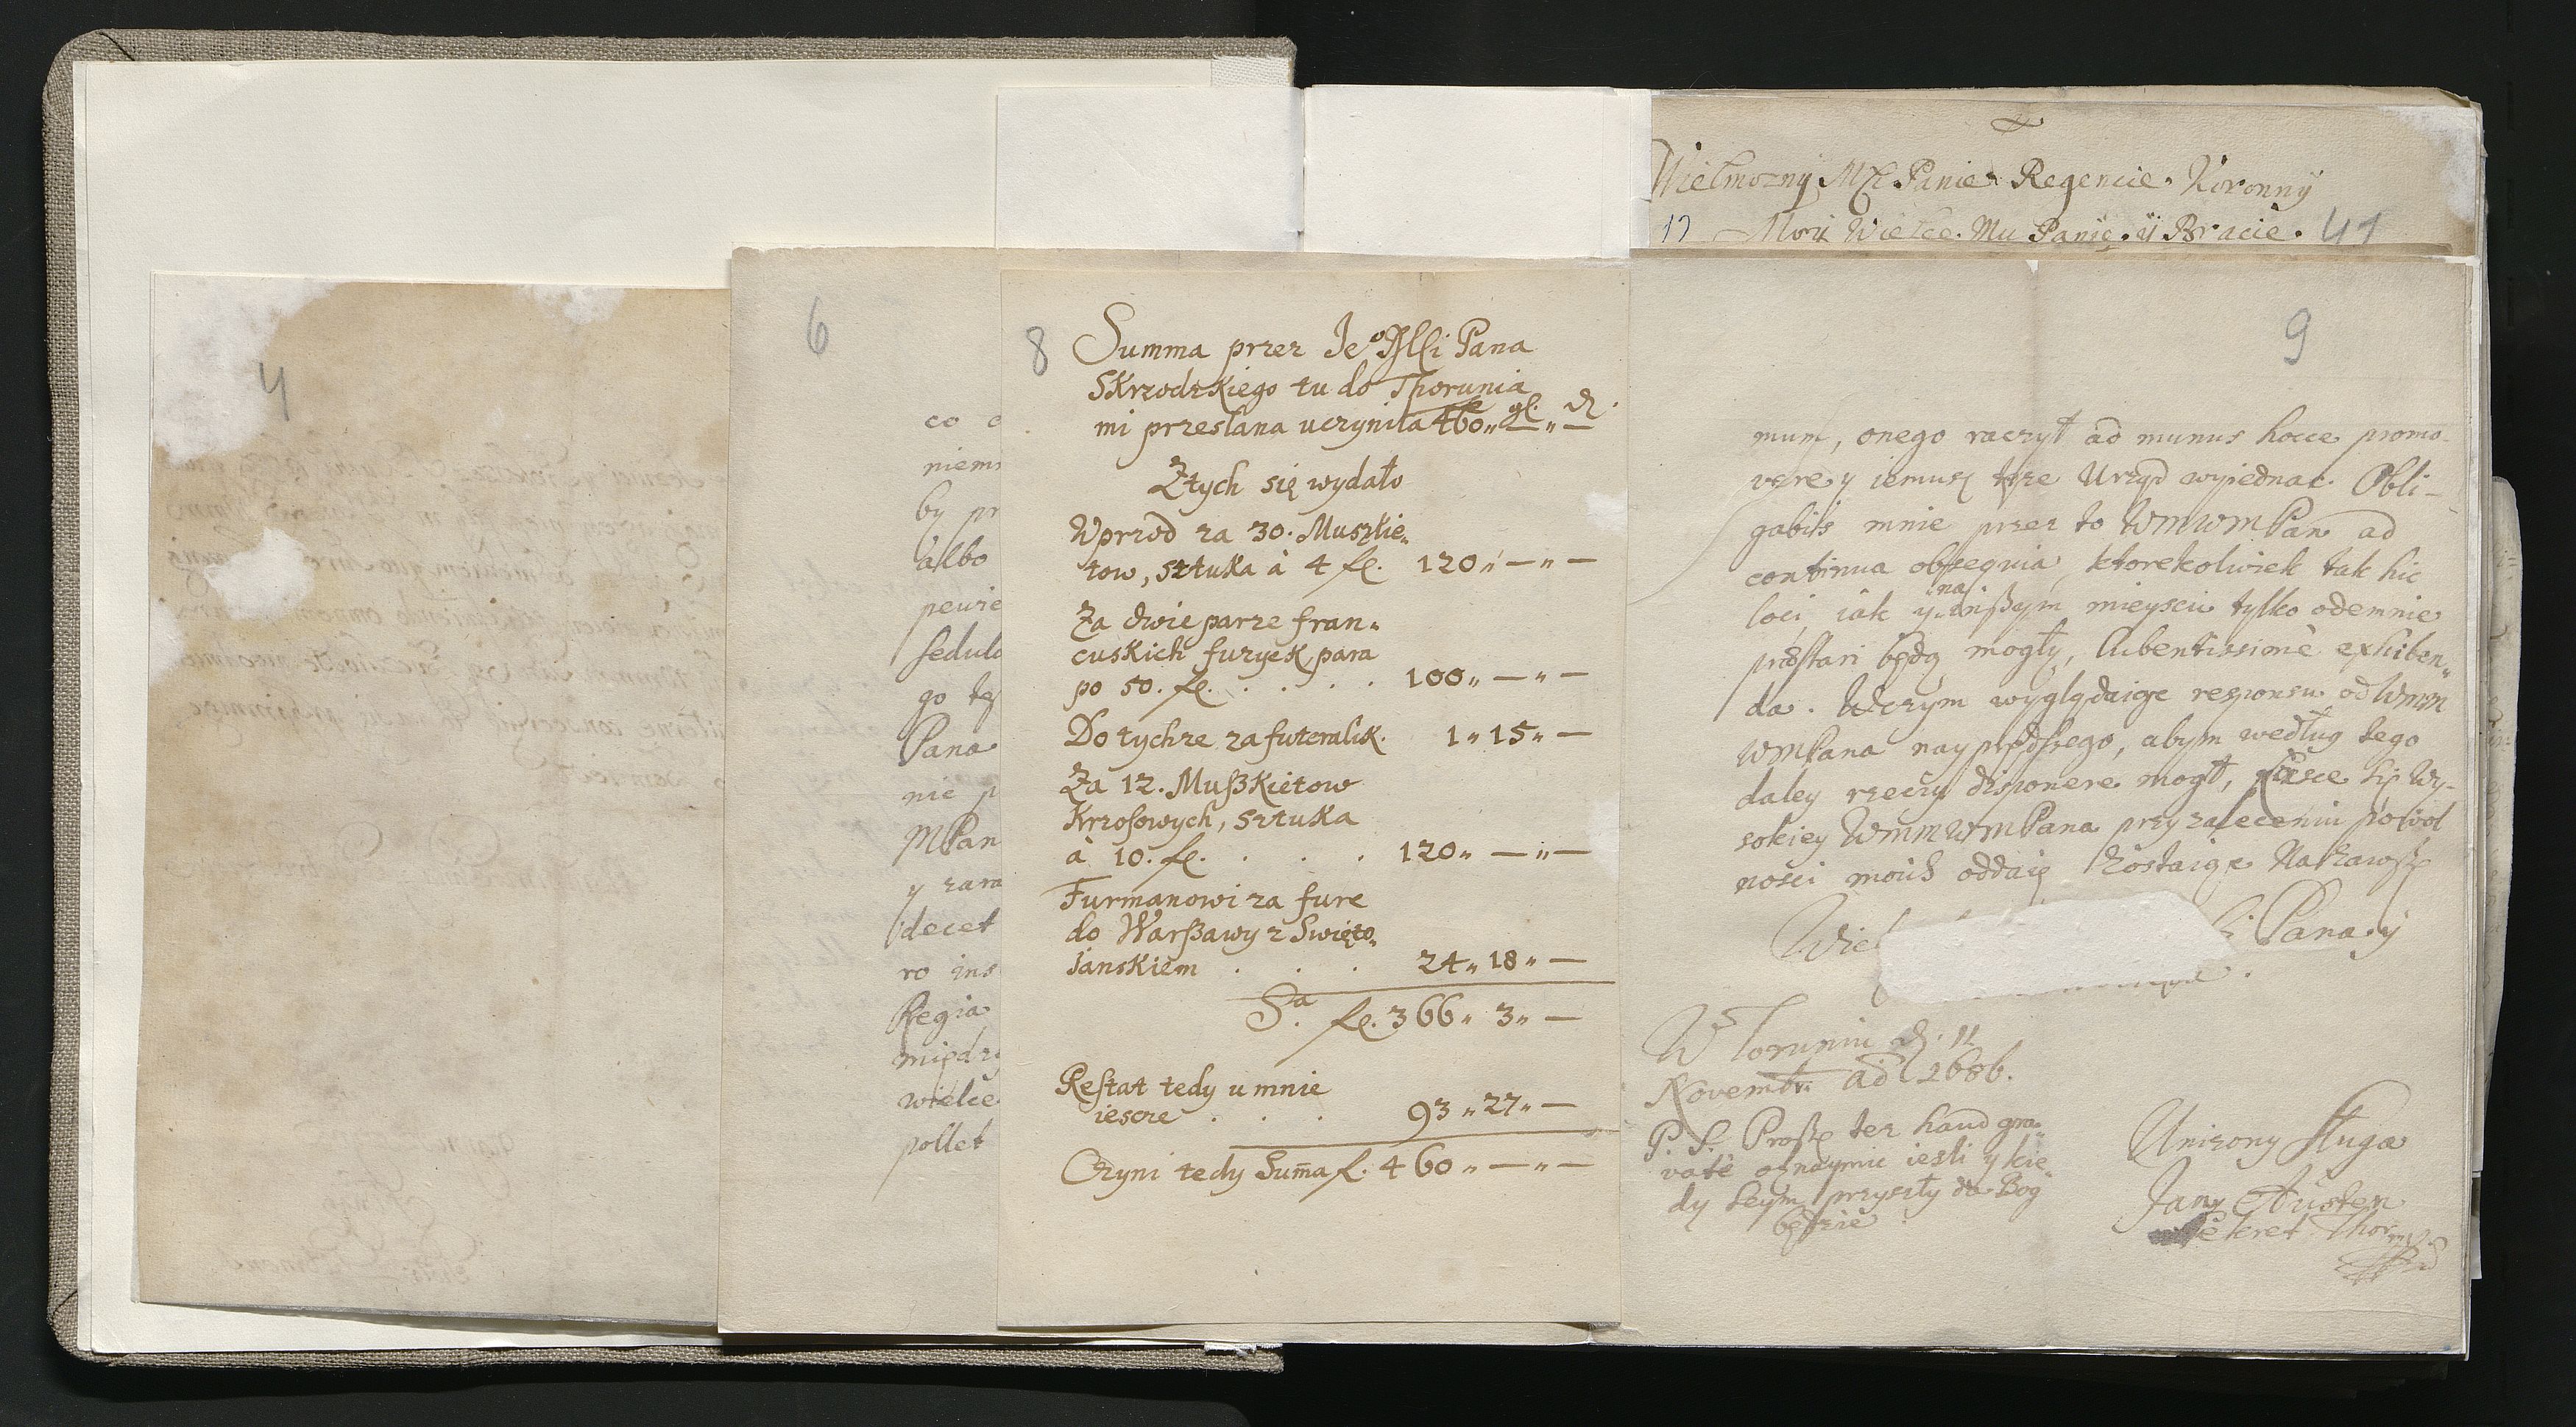 Wielmozny Mći Panie Regencie Koronny
17 Moy Wielce Mu Panie y Bracie. 41
4
6
co
niem
by pr
albo
pewie
sedulo
go teſ
Pana
nie p
MPan
y zara
decet
ro ins
Regia
międz
wielce
pollet
8
Summa przez Jeo Mſci Pana
Skrzodzkiego tu do Thorunia
mi przeslana uczyniła 460 „ — „ —
fl. gl. d.
Z tych się wydało
Wprzod za 30. Muszkie„
tow, sztuka à 4 fl. 120 „ — „ —
Za dwie parze fran„
cuskich fuzyek, para
po 50. fl. . . . . 100 „ — „ —
Do tychze za futeralik. 1 „ 15 „ —
Za 12. Muſzkietow
Krzosowych, sztuka
à 10. fl. . . . 120 „ — „ —
Furmanowi za fure
do Warßawy z Swięto„
janskiem . . . 24 „ 18 „ —
Sa. fl. 366 „ 3 „ —
Reſtat tedy u mnie
iescze . . . 93 „ 27 „ —
Czyni tedy Sum̄a fl. 460 „ — „ —
9
mum, onego raczył ad munus hocce promo-
vere y iemuſz tyze Urząd wyiednac. Obli-
gabis mnie przez to WMWMPan ad
continua obsequia, ktorekolwiek tak hic
loci, iak y na inßym mieyscu tylko odemnie
præstari będą mogły, lubentissimè exhiben„
da. Wczym wyglądaiąc responsu od WMM
WMPana nayprędszego, abym według tego
daley rzeczy disponere mogł, łasce się Wy-
sokiey WMMWMPana przy zaleceniu powol
ności moich oddaię zostaiąc Na zawsze
Wiel Pana y
W Toruniu d. 11
Novembr. aõ 1686.
P. S. Proszę tez haud gra„
vatè oznaymic iesli y kie„
dy Seym przyszły da Bog
będzie.
Unizony Sługa
Jan Austen
Sekret Thor